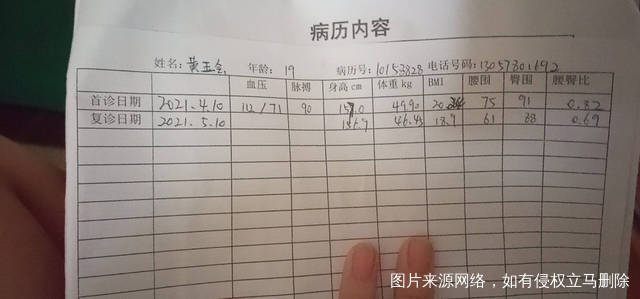 病历内容
姓名: 黄玉 年龄: 19 病历号: 10153828 电话号码:
血压 脉搏 身高 cm 体重 kg BMI 腰围 臀围 腰臀比
首诊日期 2021.4.10 112/71 90 49.90 75 91 0.82
复诊日期 2021.5.10 46.45 18.9 61 88 0.69
图片来源网络，如有侵权立马删除